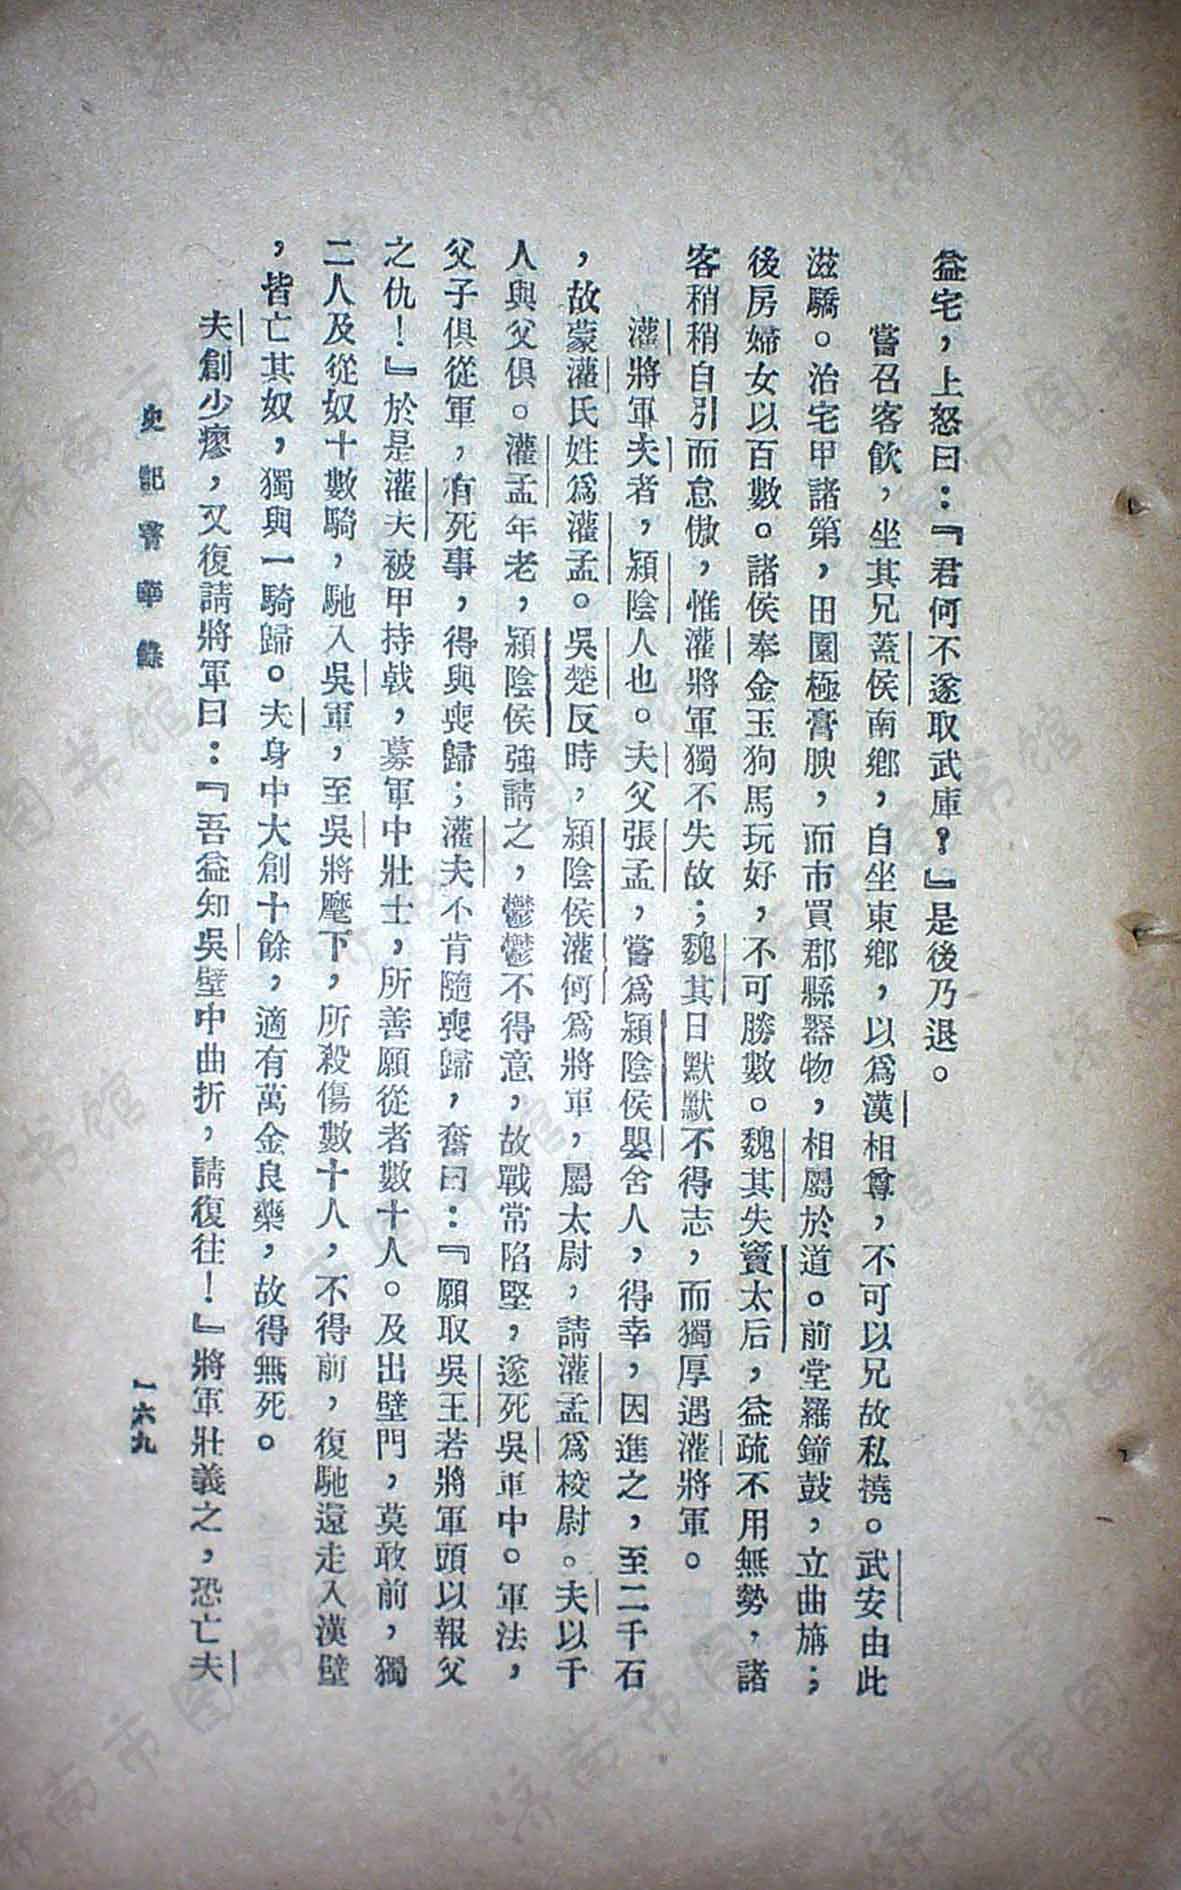 益宅，上怒曰：『君何不遂取武庫？』是後乃退。
嘗召客飲，坐其兄蓋侯南鄉，自坐東鄉，以爲漢相尊，不可以兄故私撓。武安由此
滋驕。治宅甲諸第，田園極膏腴，而市買郡縣器物，相屬於道。前堂羅鐘鼓，立曲旃；
後房婦女以百數。諸侯奉金玉狗馬玩好，不可勝數。魏其失竇太后，益疏不用無勢，諸
客稍稍自引而怠傲，惟灌將軍獨不失故；魏其日默默不得志，而獨厚遇灌將軍。
灌將軍夫者，潁陰人也。夫父張孟，嘗爲潁陰侯嬰舍人，得幸，因進之，至二千石
，故蒙灌氏姓爲灌孟。吳楚反時，潁陰侯灌何爲將軍，屬太尉，請灌孟爲校尉。夫以千
人與父俱。灌孟年老，潁陰侯強請之，鬱鬱不得意，故戰常陷堅，遂死吳軍中。軍法，
父子俱從軍，有死事，得與喪歸；灌夫不肯隨喪歸，奮曰：『願取吳王若將軍頭以報父
之仇！』於是灌夫被甲持戟，募軍中壯士，所善願從者數十人。及出壁門，莫敢前，獨
二人及從奴十數騎，馳入吳軍，至吳將麾下，所殺傷數十人，不得前，復馳還走入漢壁
，皆亡其奴，獨與一騎歸。夫身中大創十餘，適有萬金良藥，故得無死。
夫創少瘳，又復請將軍曰：『吾益知吳壁中曲折，請復往！』將軍壯義之，恐亡夫
史記菁華錄
一六九
济南市图书馆